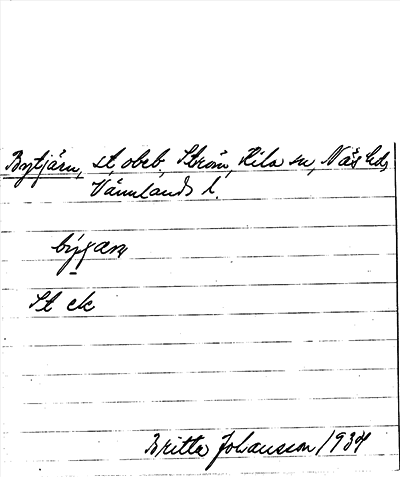 Bytjärn, st, obeb, Ström, Kila sn, Näs hd,
Värmlands l.
St ek
Britta Johansson 1934